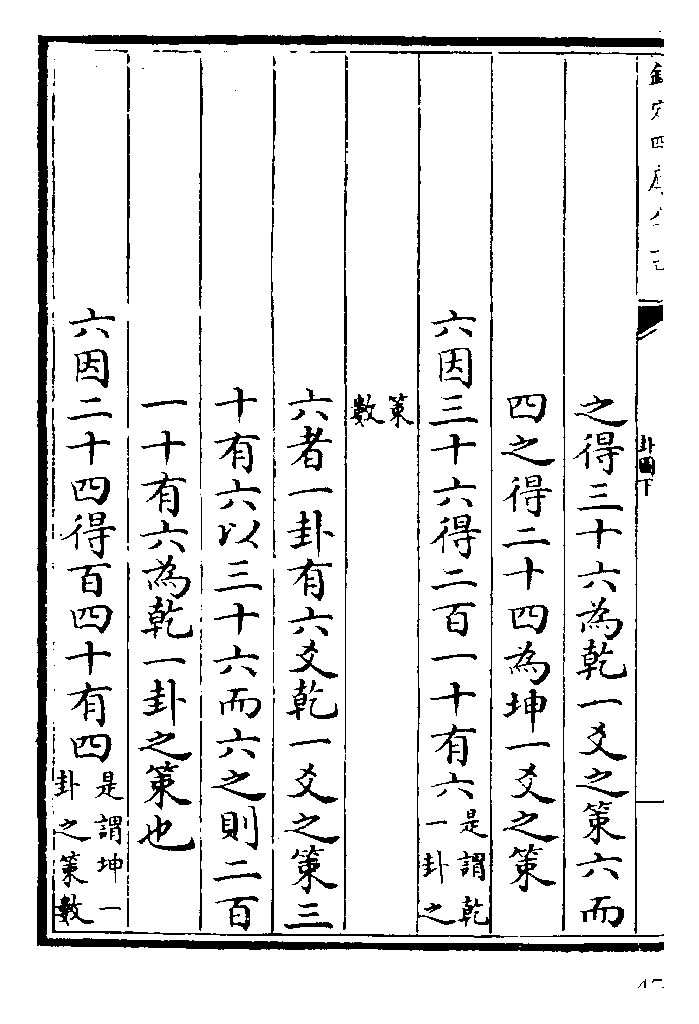 欽定四庫全書
卦圖下
之得三十六為乾一爻之策六而
四之得二十四為坤一爻之策
六因三十六得二百一十有六是謂乾一卦之
策數
六者一卦有六爻乾一爻之策三
十有六以三十六而六之則二百
一十有六為乾一卦之策也
六因二十四得百四十有四是謂坤一卦之策數